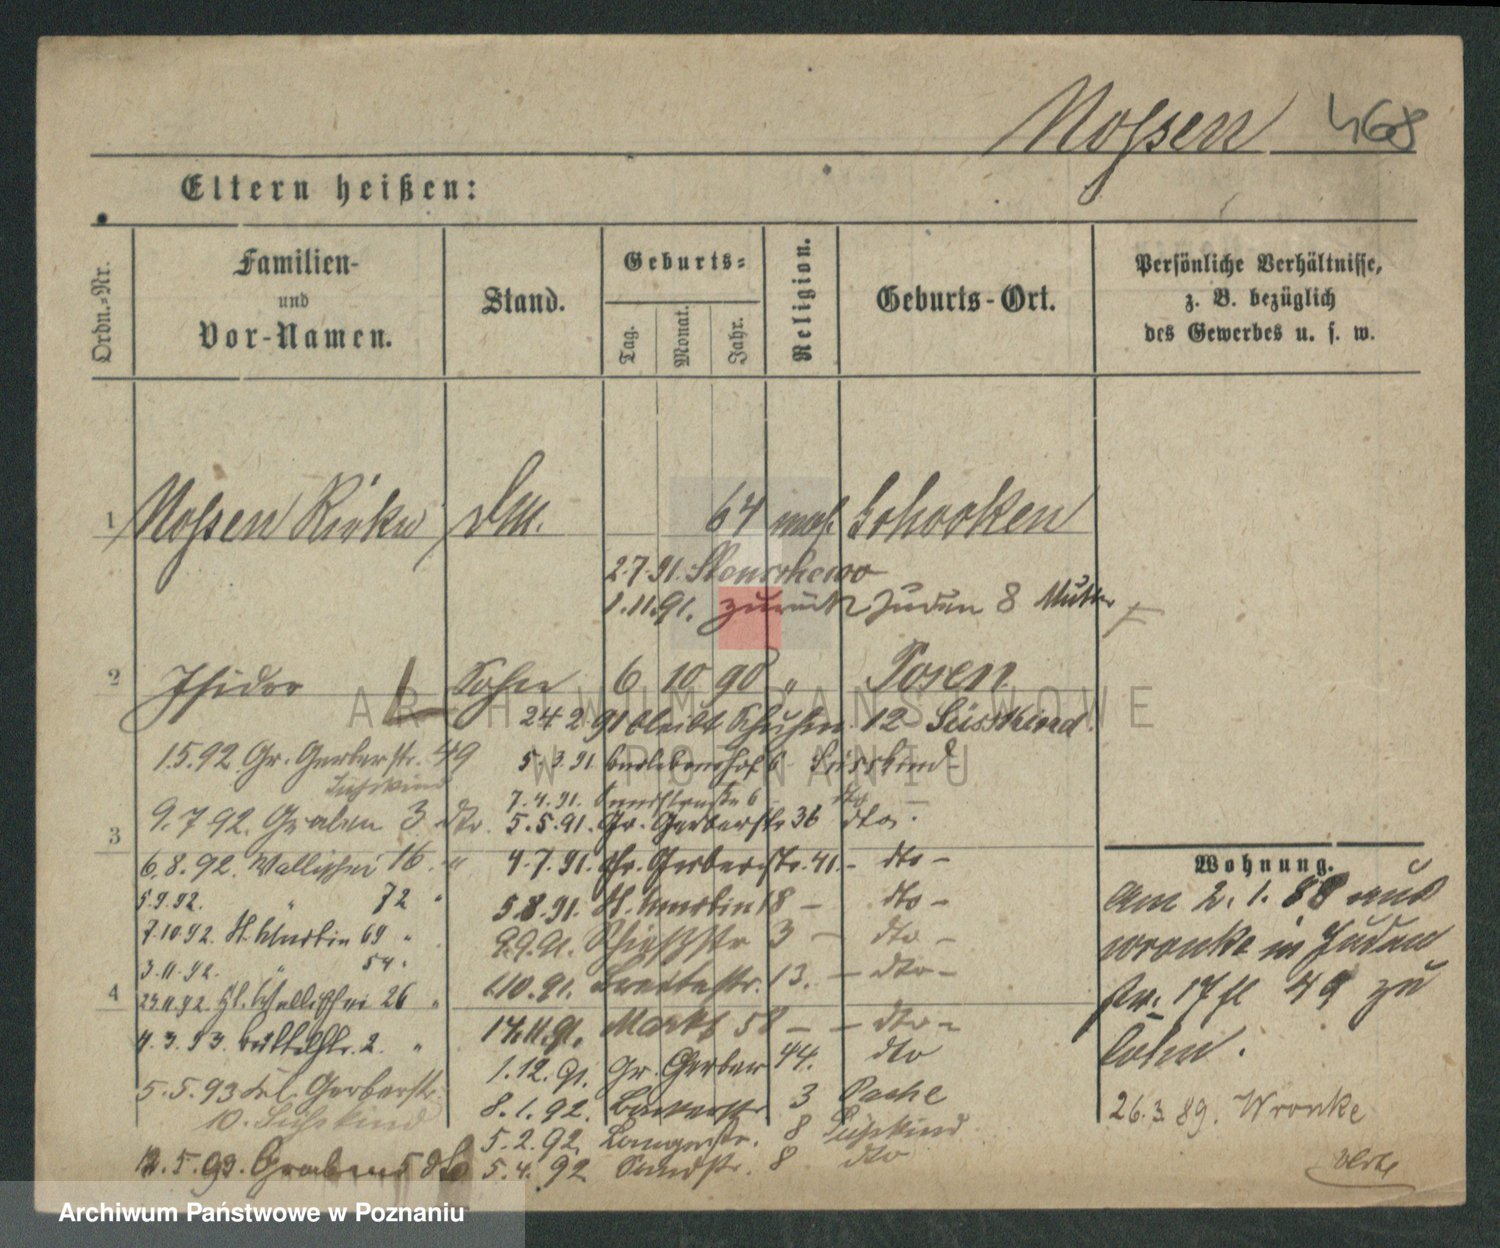 Mossen 468
Eltern heißen:
Ordn.-Nr.
Familien-
und
Vor-Namen.
Stand.
Geburts-
Tag.
Monat.
Jahr.
Religion.
Geburts-Ort.
Persönliche Verhältnisse,
z. B. bezüglich
des Gewerbes u. s. w.
1 Mossen Rivke 64 mos. Schocken
2.7.91.
1.11.91. zurück Juden 8 Mutter
2 Isidor Sohn 6 10 90 " Posen
24 2. 91 bleibt 12 Süsskind
1.5.92 Gr. Gerberstr. 49
Süsskind
5.3.91 6 Süsskind
7.4.91. 6 dto
9.7.92. Graben 3 dto.
5.5.91. Gr. Gerberstr 36 dto.
3
6.8.92. Wallischei 16. "
4.7.91. Gr. Gerberstr. 41. - dto -
5.9.92. " 72 "
5.8.91. St. Martin 18 - dto -
7.10.92. St. Martin 69 "
9.9.91. 3 - dto -
3.11.92. " 54 "
1.10.91. Breitestr. 13. - dto -
4
23.11.92. Wallischei 26 "
17.11.91. Markt 58 - - dto -
4.3.93. Büttelstr. 2. "
1.12.91. Gr. Gerber 44. dto
5.5.93 Kl. Gerberstr.
10. Süsskind
8.1.92. 3
5.2.92. Langestr. 8 Süsskind
12.5.93. Graben 5 dto
5.4.92 Sandstr. 8 dto
Wohnung.
Am 2.1.88 aus
Wronke in Juden
str. 17 49 zu
26.3.89. Wronke
ARCHIWUM PAŃSTWOWE
W POZNANIU
Archiwum Państwowe w Poznaniu